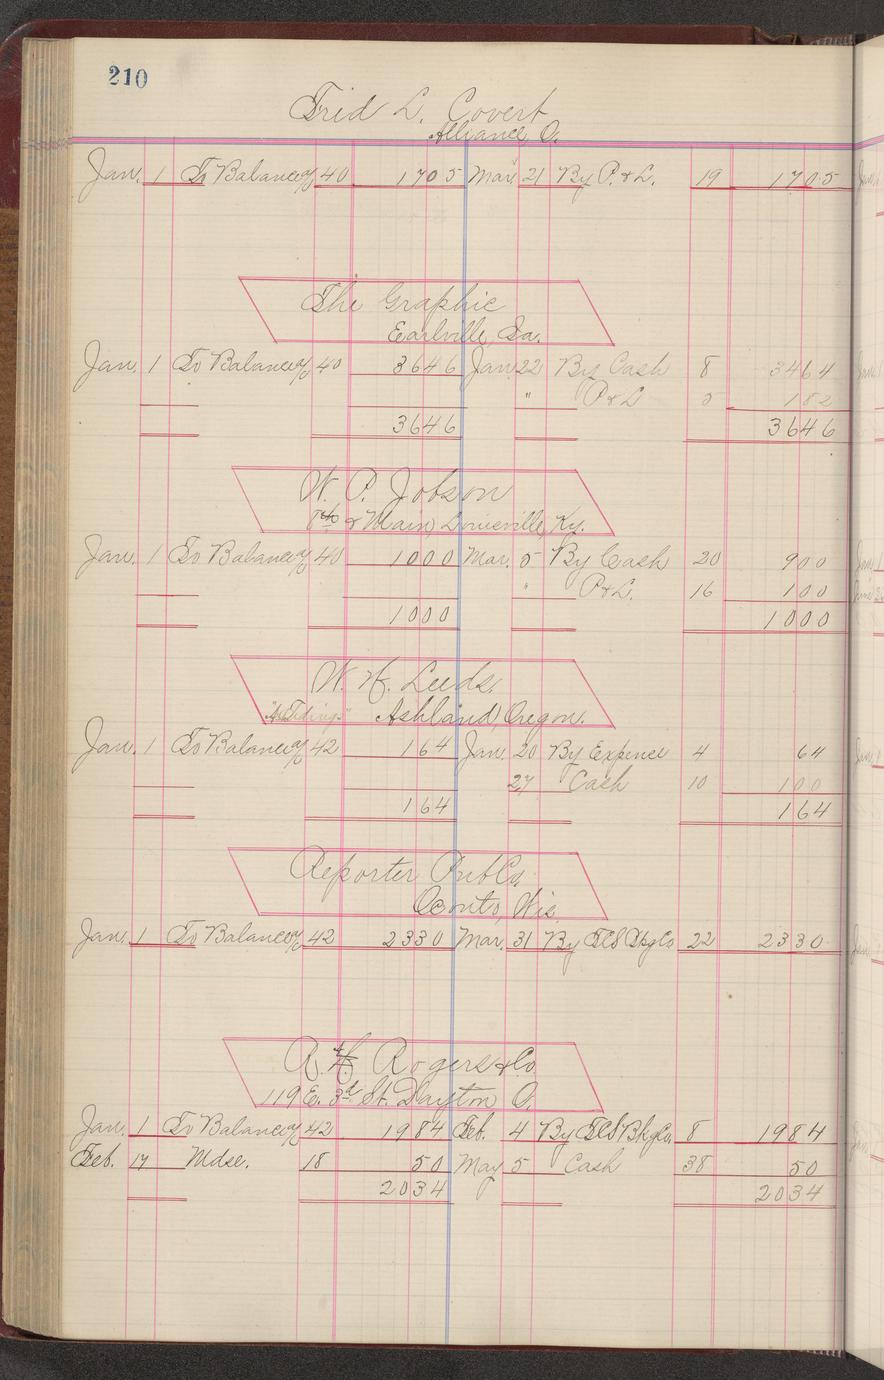 210
Fred L. Covert
Alliance, O.
Jan. 1 To Balance a/c 40 1705 Mar. 21 By P. & L. 19 1705
The Graphic
Earlville, Ia.
Jan. 1 To Balance a/c 40 3646 Jan 22 By Cash 8 3464
" P & L 5 182
3646 3646
W. P. Jobson
& Main, Louisville, Ky.
Jan. 1 To Balance a/c 40 1000 Mar. 5 By Cash 20 900
" P & L. 16 100
1000 1000
W. H. Leeds.
"Tidings" Ashland, Oregon.
Jan. 1 To Balance a/c 42 164 Jan. 20 By Expence 4 64
27 Cash 10 100
164 164
Reporter Pub Co.
Oconto, Wis.
Jan. 1 To Balance a/c 42 2330 Mar. 31 By 22 2330
A. H. Rogers & Co.
119 E. 3rd St. Dayton O.
Jan. 1 To Balance a/c 42 1984 Feb. 4 By 8 1984
Feb. 17 Mdse. 18 50 May 5 Cash 38 50
2034 2034